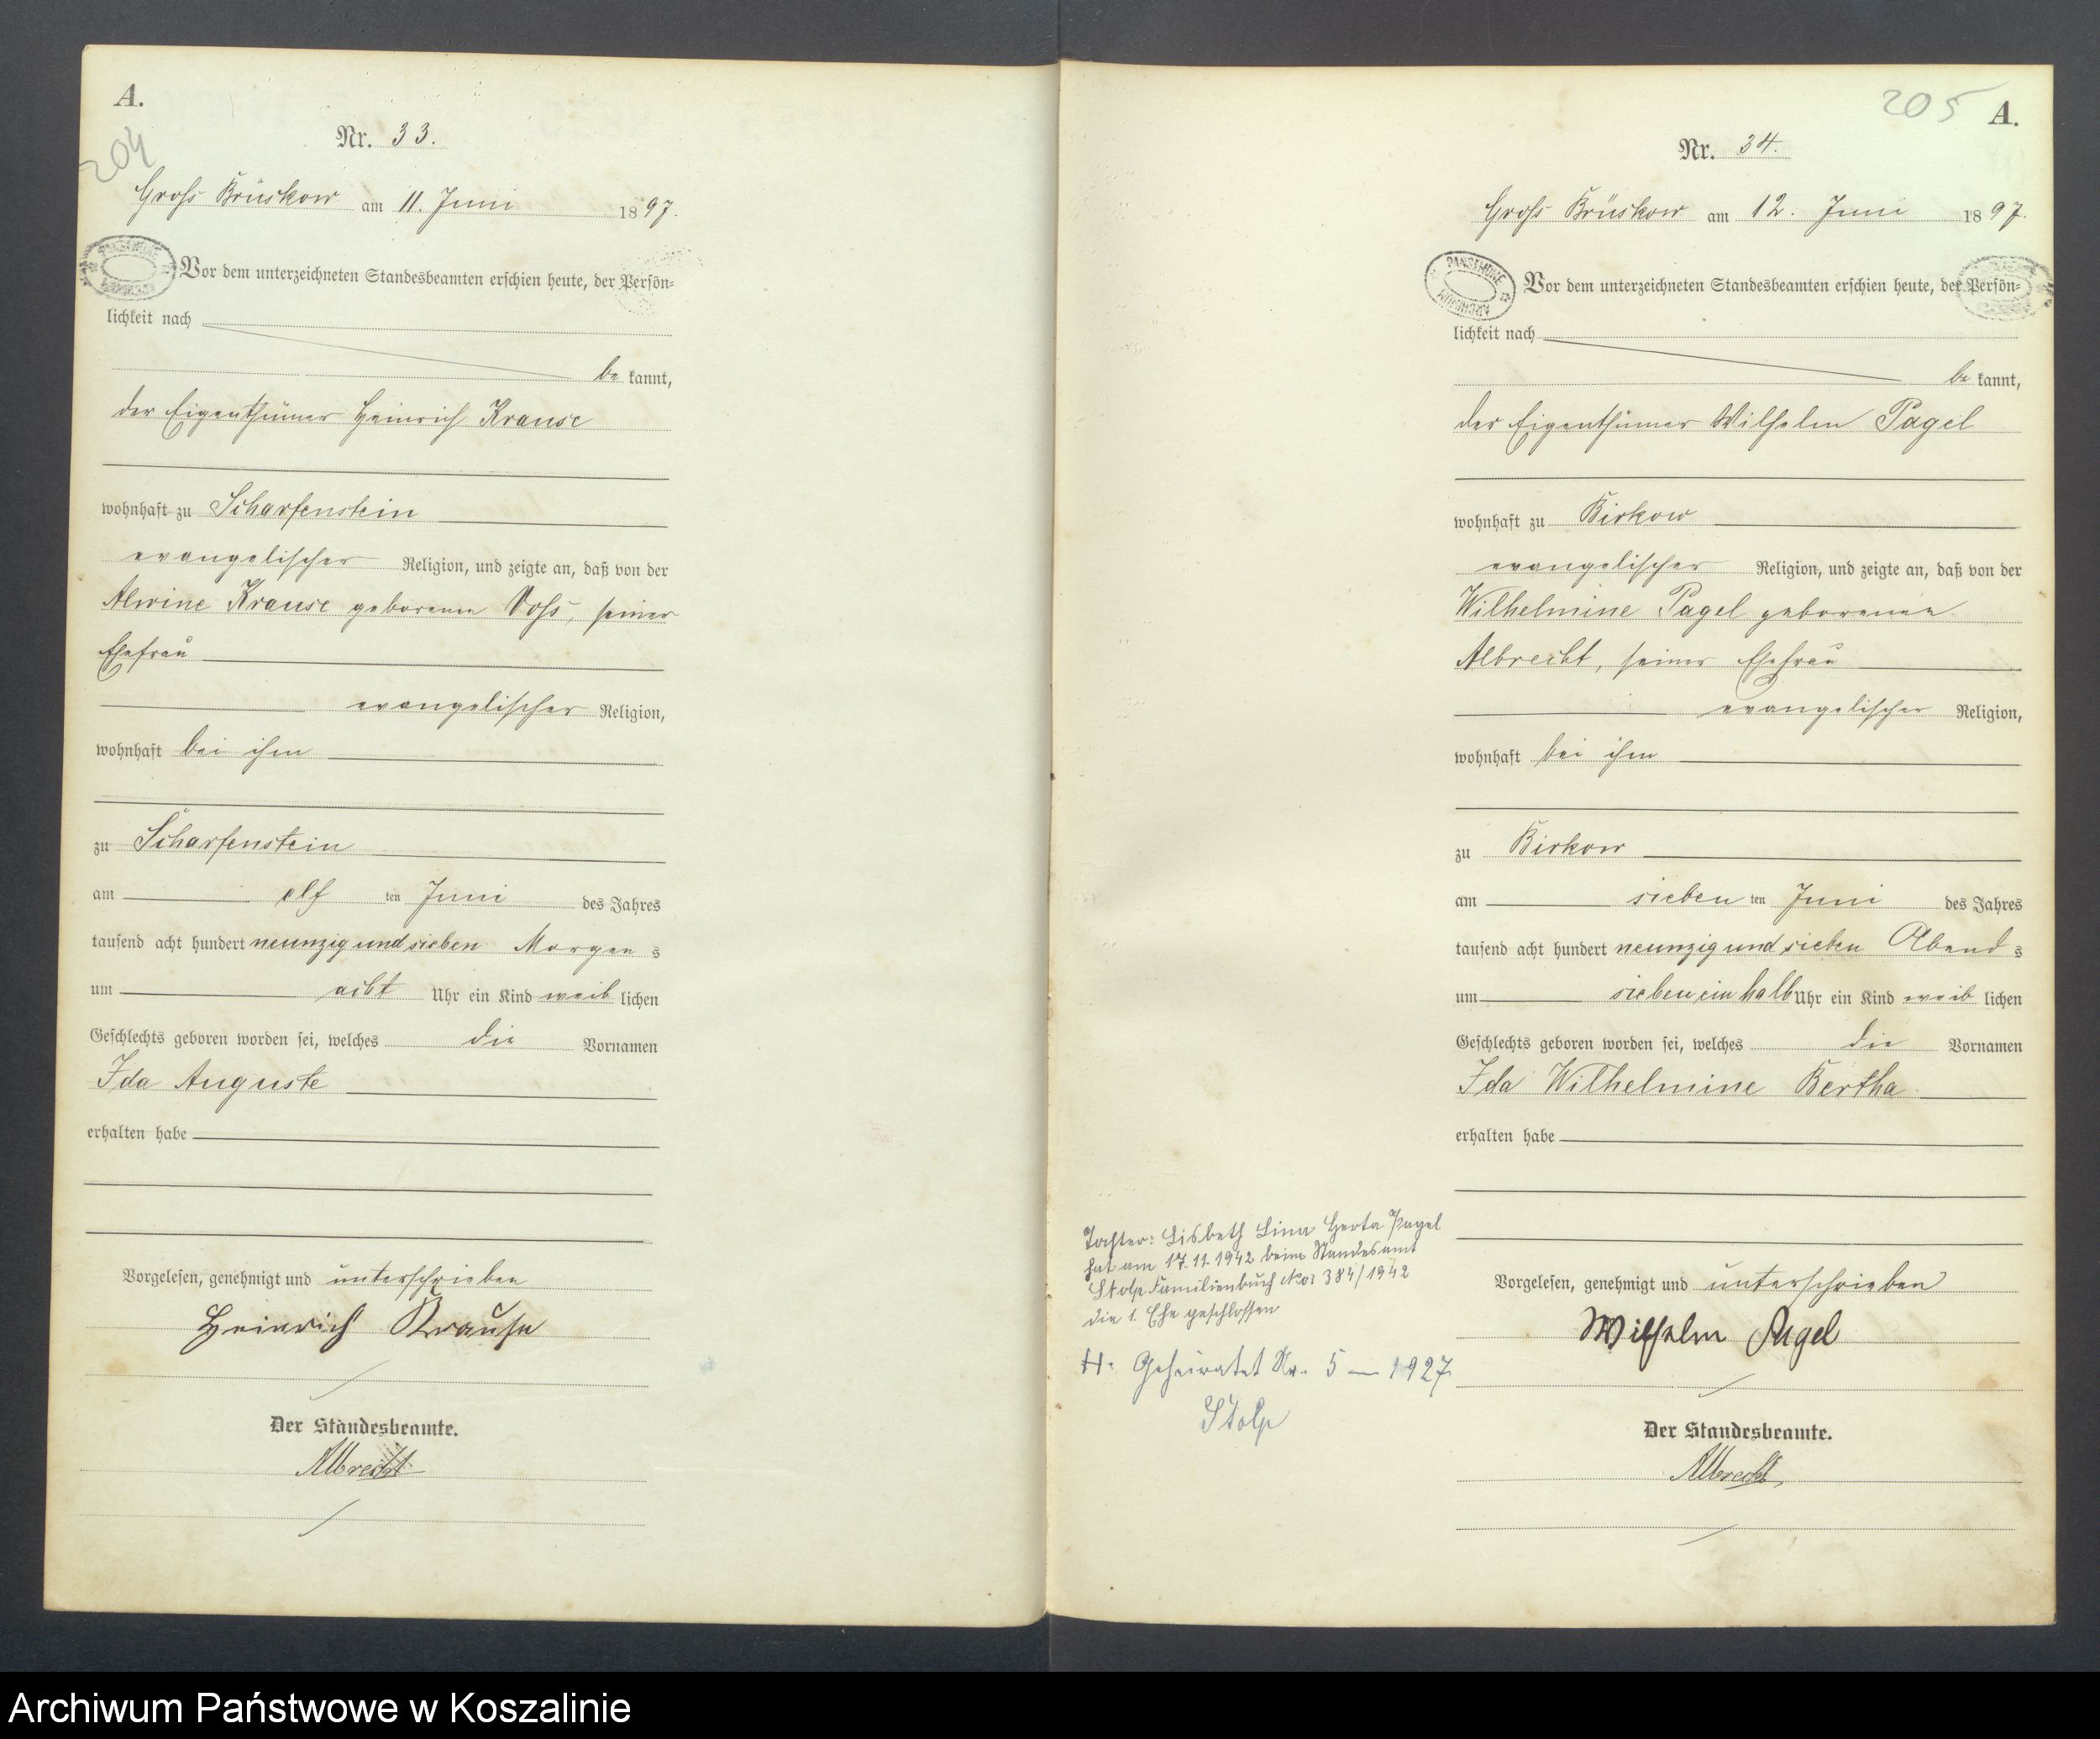 A.
204
Nr. 33.
Gross Brüskow am 11. Juni 1897.
Vor dem unterzeichneten Standesbeamten erschien heute, der Persön-
lichkeit nach
be kannt,
der Eigenthümer Heinrich Krause
wohnhaft zu Scharfenstein
evangelischer Religion, und zeigte an, daß von der
Alwine Krause geborenen Voss, seiner
Ehefrau
evangelischer Religion,
wohnhaft bei ihm
zu Scharfenstein
am elf ten Juni des Jahres
tausend acht hundert neunzig und sieben Morgen s
um acht Uhr ein Kind weib lichen
Geschlechts geboren worden sei, welches die Vornamen
Ida Auguste
erhalten habe
Vorgelesen, genehmigt und unterschrieben
Heinrich Krause
Der Standesbeamte.
Albrecht
205
A.
Nr. 34.
Gross Brüskow am 12. Juni 1897.
PAŃSTWOWE
ARCHIWUM
Vor dem unterzeichneten Standesbeamten erschien heute, der Persön-
lichkeit nach
be kannt,
der Eigenthümer Wilhelm Pagel
wohnhaft zu Birkow
evangelischer Religion, und zeigte an, daß von der
Wilhelmine Pagel geborenen
Albrecht, seiner Ehefrau
evangelischer Religion,
wohnhaft bei ihm
zu Birkow
am sieben ten Juni des Jahres
tausend acht hundert neunzig und sieben Abend s
um sieben ein halb Uhr ein Kind weib lichen
Geschlechts geboren worden sei, welches die Vornamen
Ida Wilhelmine Bertha
erhalten habe
Vorgelesen, genehmigt und unterschrieben
Wilhelm Pagel
Der Standesbeamte.
Albrecht
Tochter: Lisbeth Lina Herta Pagel
hat am 17.11.1942 beim Standesamt
Stolp Familienbuch No: 384/1942
die 1. Ehe geschlossen
H. Geheiratet Nr. 5 — 1927
Stolp
Archiwum Państwowe w Koszalinie